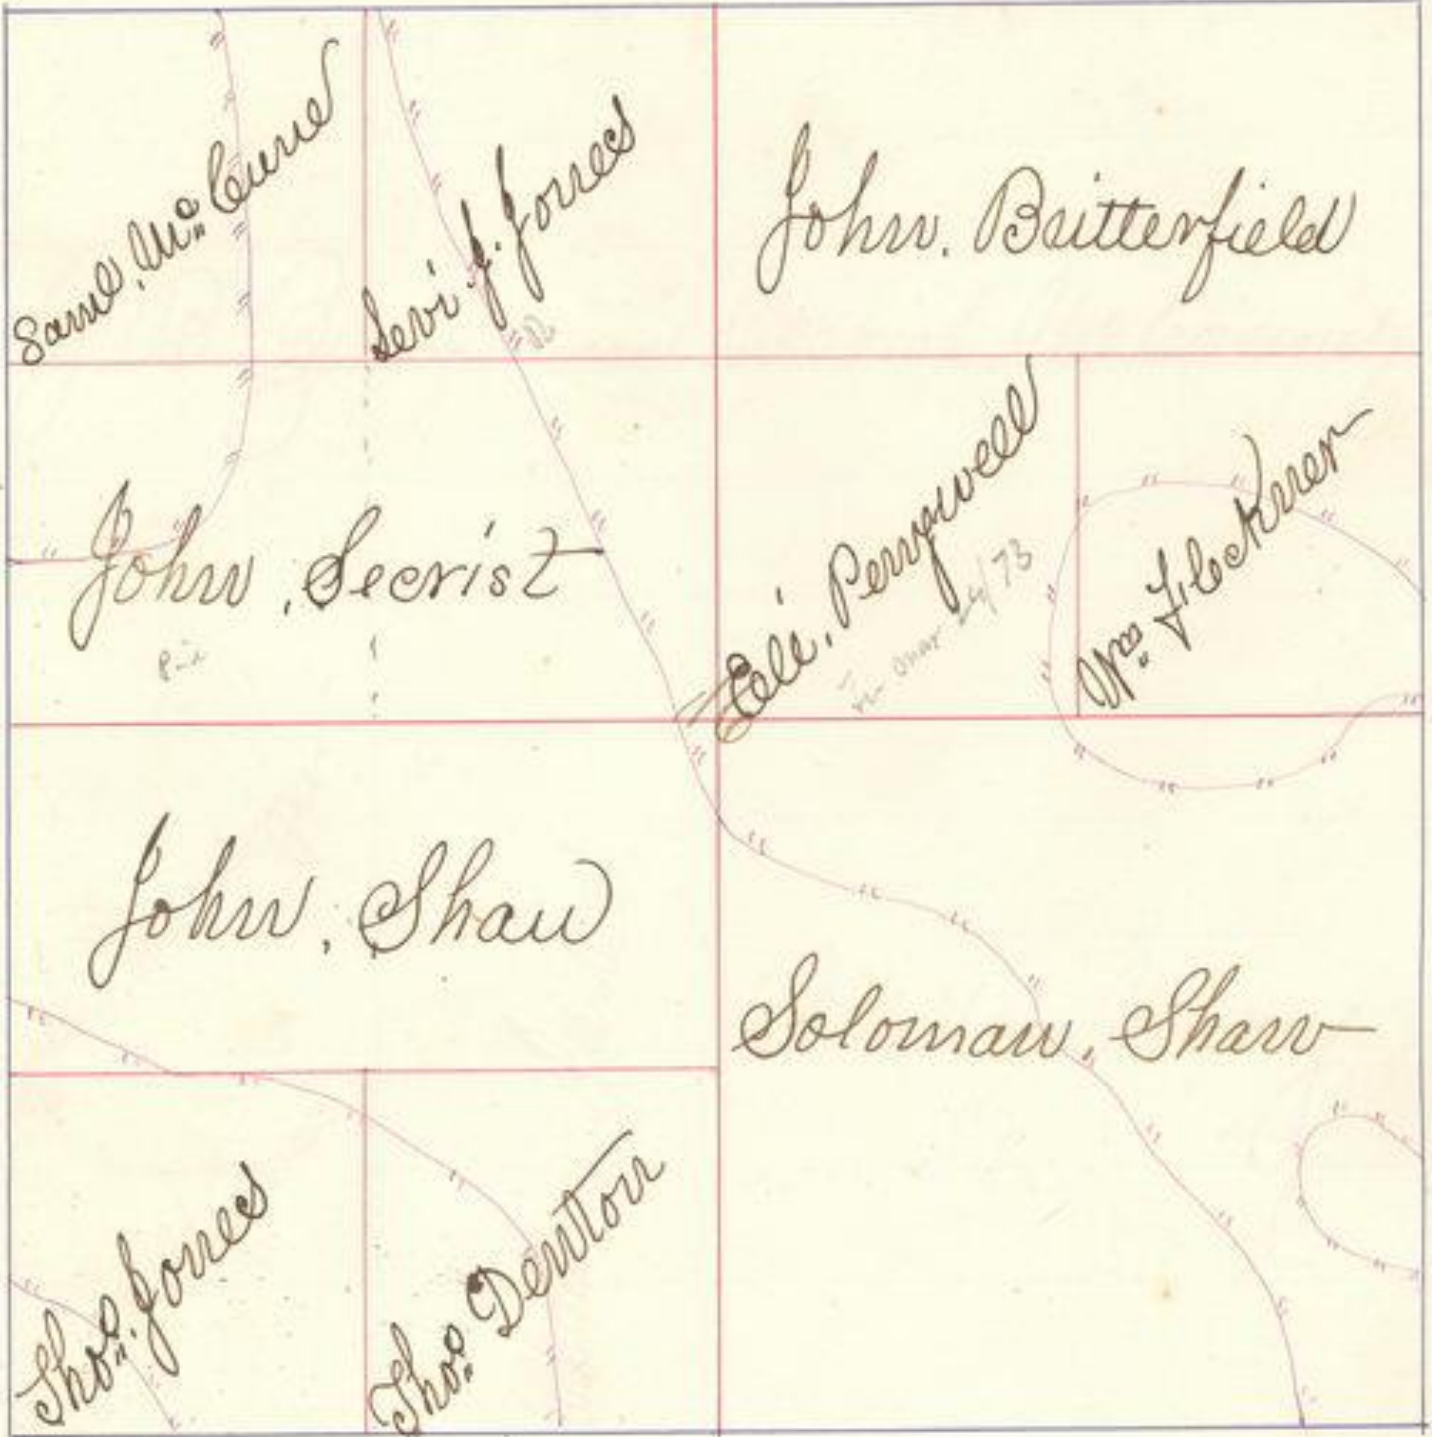 Saml, Mc Cune
Levi. J. Jones
John. Butterfield
John, Secrist
Eli. Pennywell
Wm Fleckner
John, Shaw
Soloman, Shaw
Thos. Jones
Thos. Denton